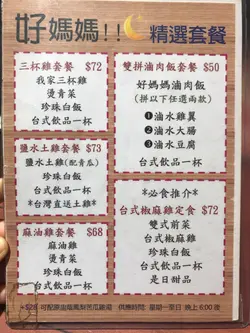 好媽媽!! 精選套餐
三杯雞套餐 $72
我家三杯雞
燙青菜
珍珠白飯
台式飲品一杯
鹽水土雞套餐 $73
鹽水土雞(配青瓜)
珍珠白飯
台式飲品一杯
*台灣直送土雞*
麻油雞套餐 $68
麻油雞
燙青菜
珍珠白飯
台式飲品一杯
雙拼滷肉飯套餐 $50
好媽媽滷肉飯
(拼以下任選兩款)
❶滷水雞翼
❷滷水大腸
❸滷水豆腐
台式飲品一杯
*必食推介*
台式椒麻雞定食 $72
雙式前菜
台式椒麻雞
珍珠白飯
台式飲品一杯
是日甜品
+$28 可配原盅鹹鳳梨苦瓜雞湯 供應時間: 星期一至日 晚上6:00後